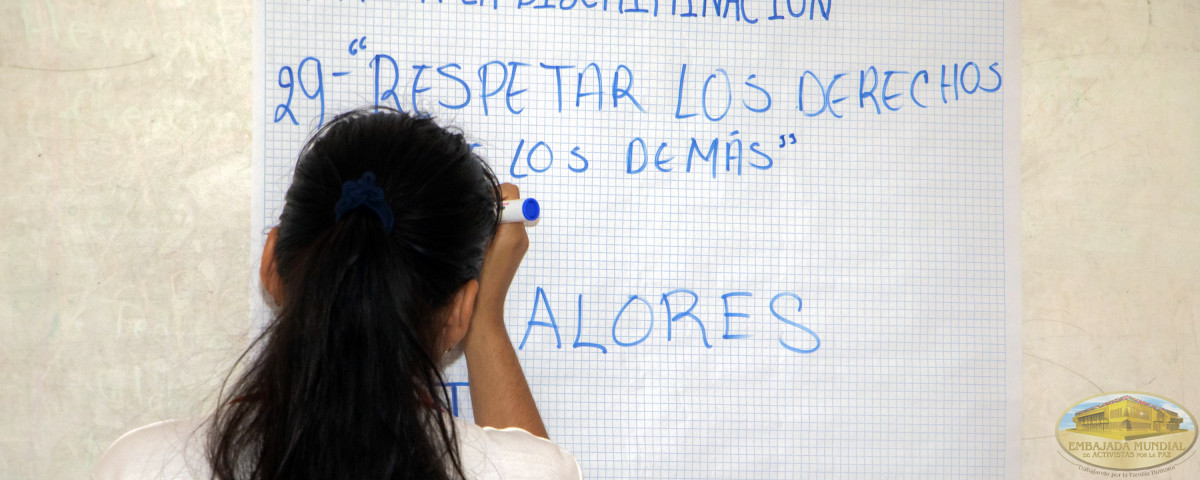 DISCRIMINACIÓN
29-"RESPETAR LOS DERECHOS
LOS DEMÁS"
ALORES
T
EMBAJADA MUNDIAL
DE ACTIVISTAS POR LA PAZ
"Trabajando por la Familia Humana"